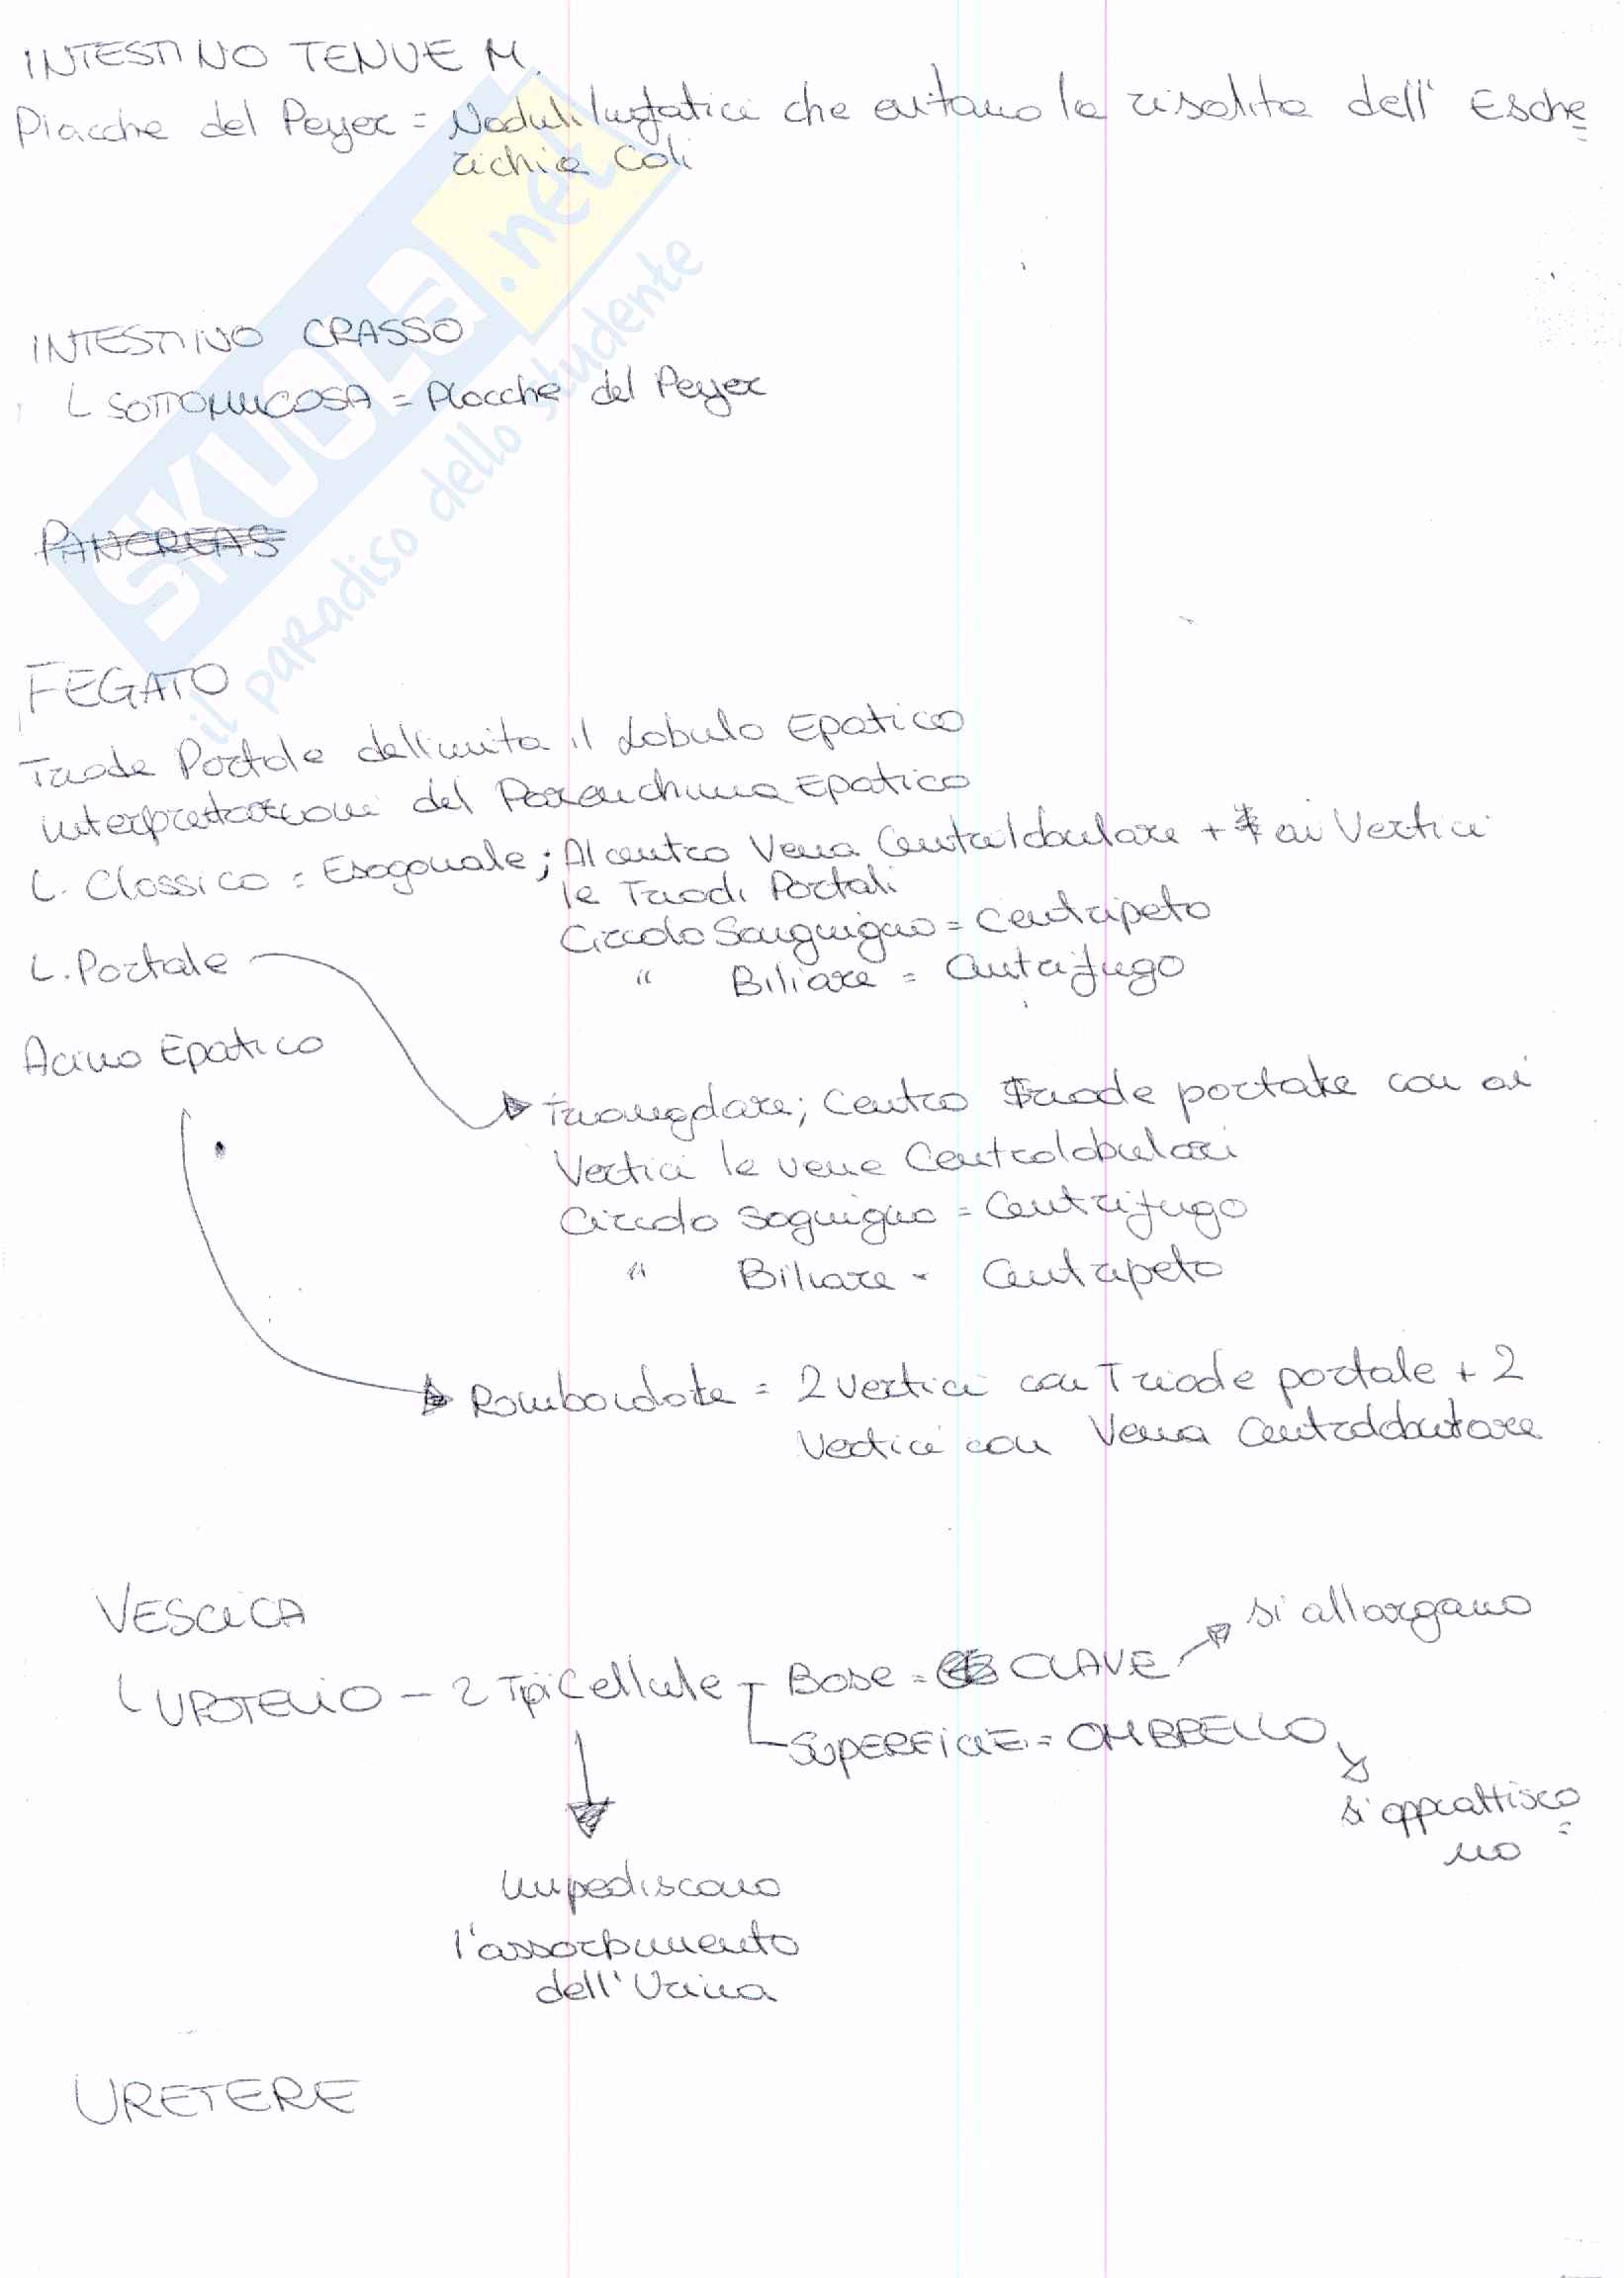 INTESTINO TENUE M.
Placche del Peyer = Noduli linfatici che evitano la risalita dell' Esche
richia Coli
INTESTINO CRASSO
L SOTTOMUCOSA = Placche del Peyer
PANCREAS
FEGATO
Triade Portale delimita il Lobulo Epatico
interpretazioni del Parenchima Epatico
L. Classico = Esagonale; Al centro Vena Centrolobulare + ai Vertici
le Triadi Portali
Circolo Sanguigno = Centripeto
" Biliare = Centrifugo
L. Portale
Acino Epatico
Triangolare; Centro Triade portale con ai
Vertici le vene Centrolobulari
Circolo Saguigno = Centrifugo
" Biliare = Centripeto
Romboidale = 2 vertici con Triade portale + 2
Vertici con Vena Centrolobulare
VESCICA
L UROTELIO - 2 Tipi Cellule
Base = CLAVE
si allargano
SUPERFICIE = OMBRELLO
si appiattisco
no
impediscono
l'assorbimento
dell'Urina
URETERE
SKUOLA.net
il paradiso dello studente